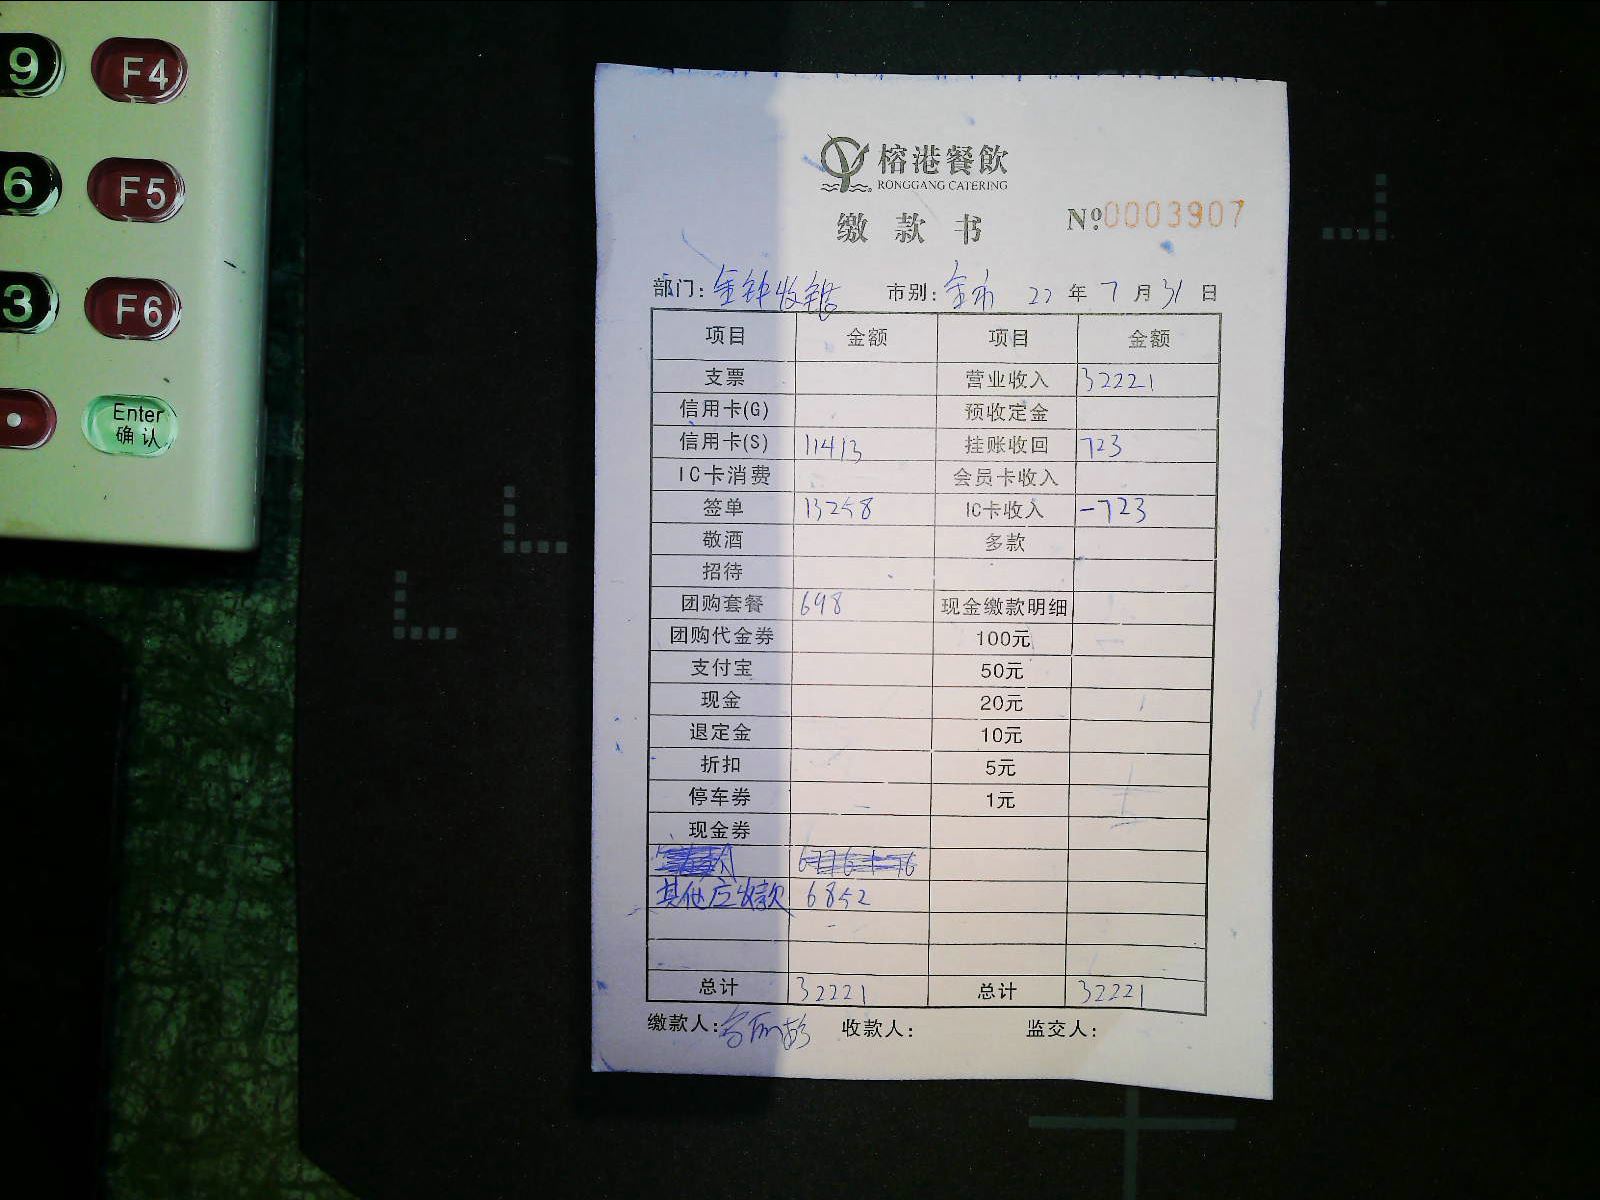 9 F4
6 F5
3 F6
Enter
确认
榕港餐飲
RONGGANG CATERING
缴款书 №0003907
部门: 金钟收银 市别: 全市 22 年 7 月 31 日
项目 金额 项目 金额
支票 营业收入 32221
信用卡(G) 预收定金
信用卡(S) 11413 挂账收回 723
IC卡消费 会员卡收入
签单 13258 IC卡收入 -723
敬酒 多款
招待
团购套餐 698 现金缴款明细
团购代金券 100元
支付宝 50元
现金 20元
退定金 10元
折扣 5元
停车券 1元
现金券
其他应收款 6852
总计 32221 总计 32221
缴款人: 收款人: 监交人: